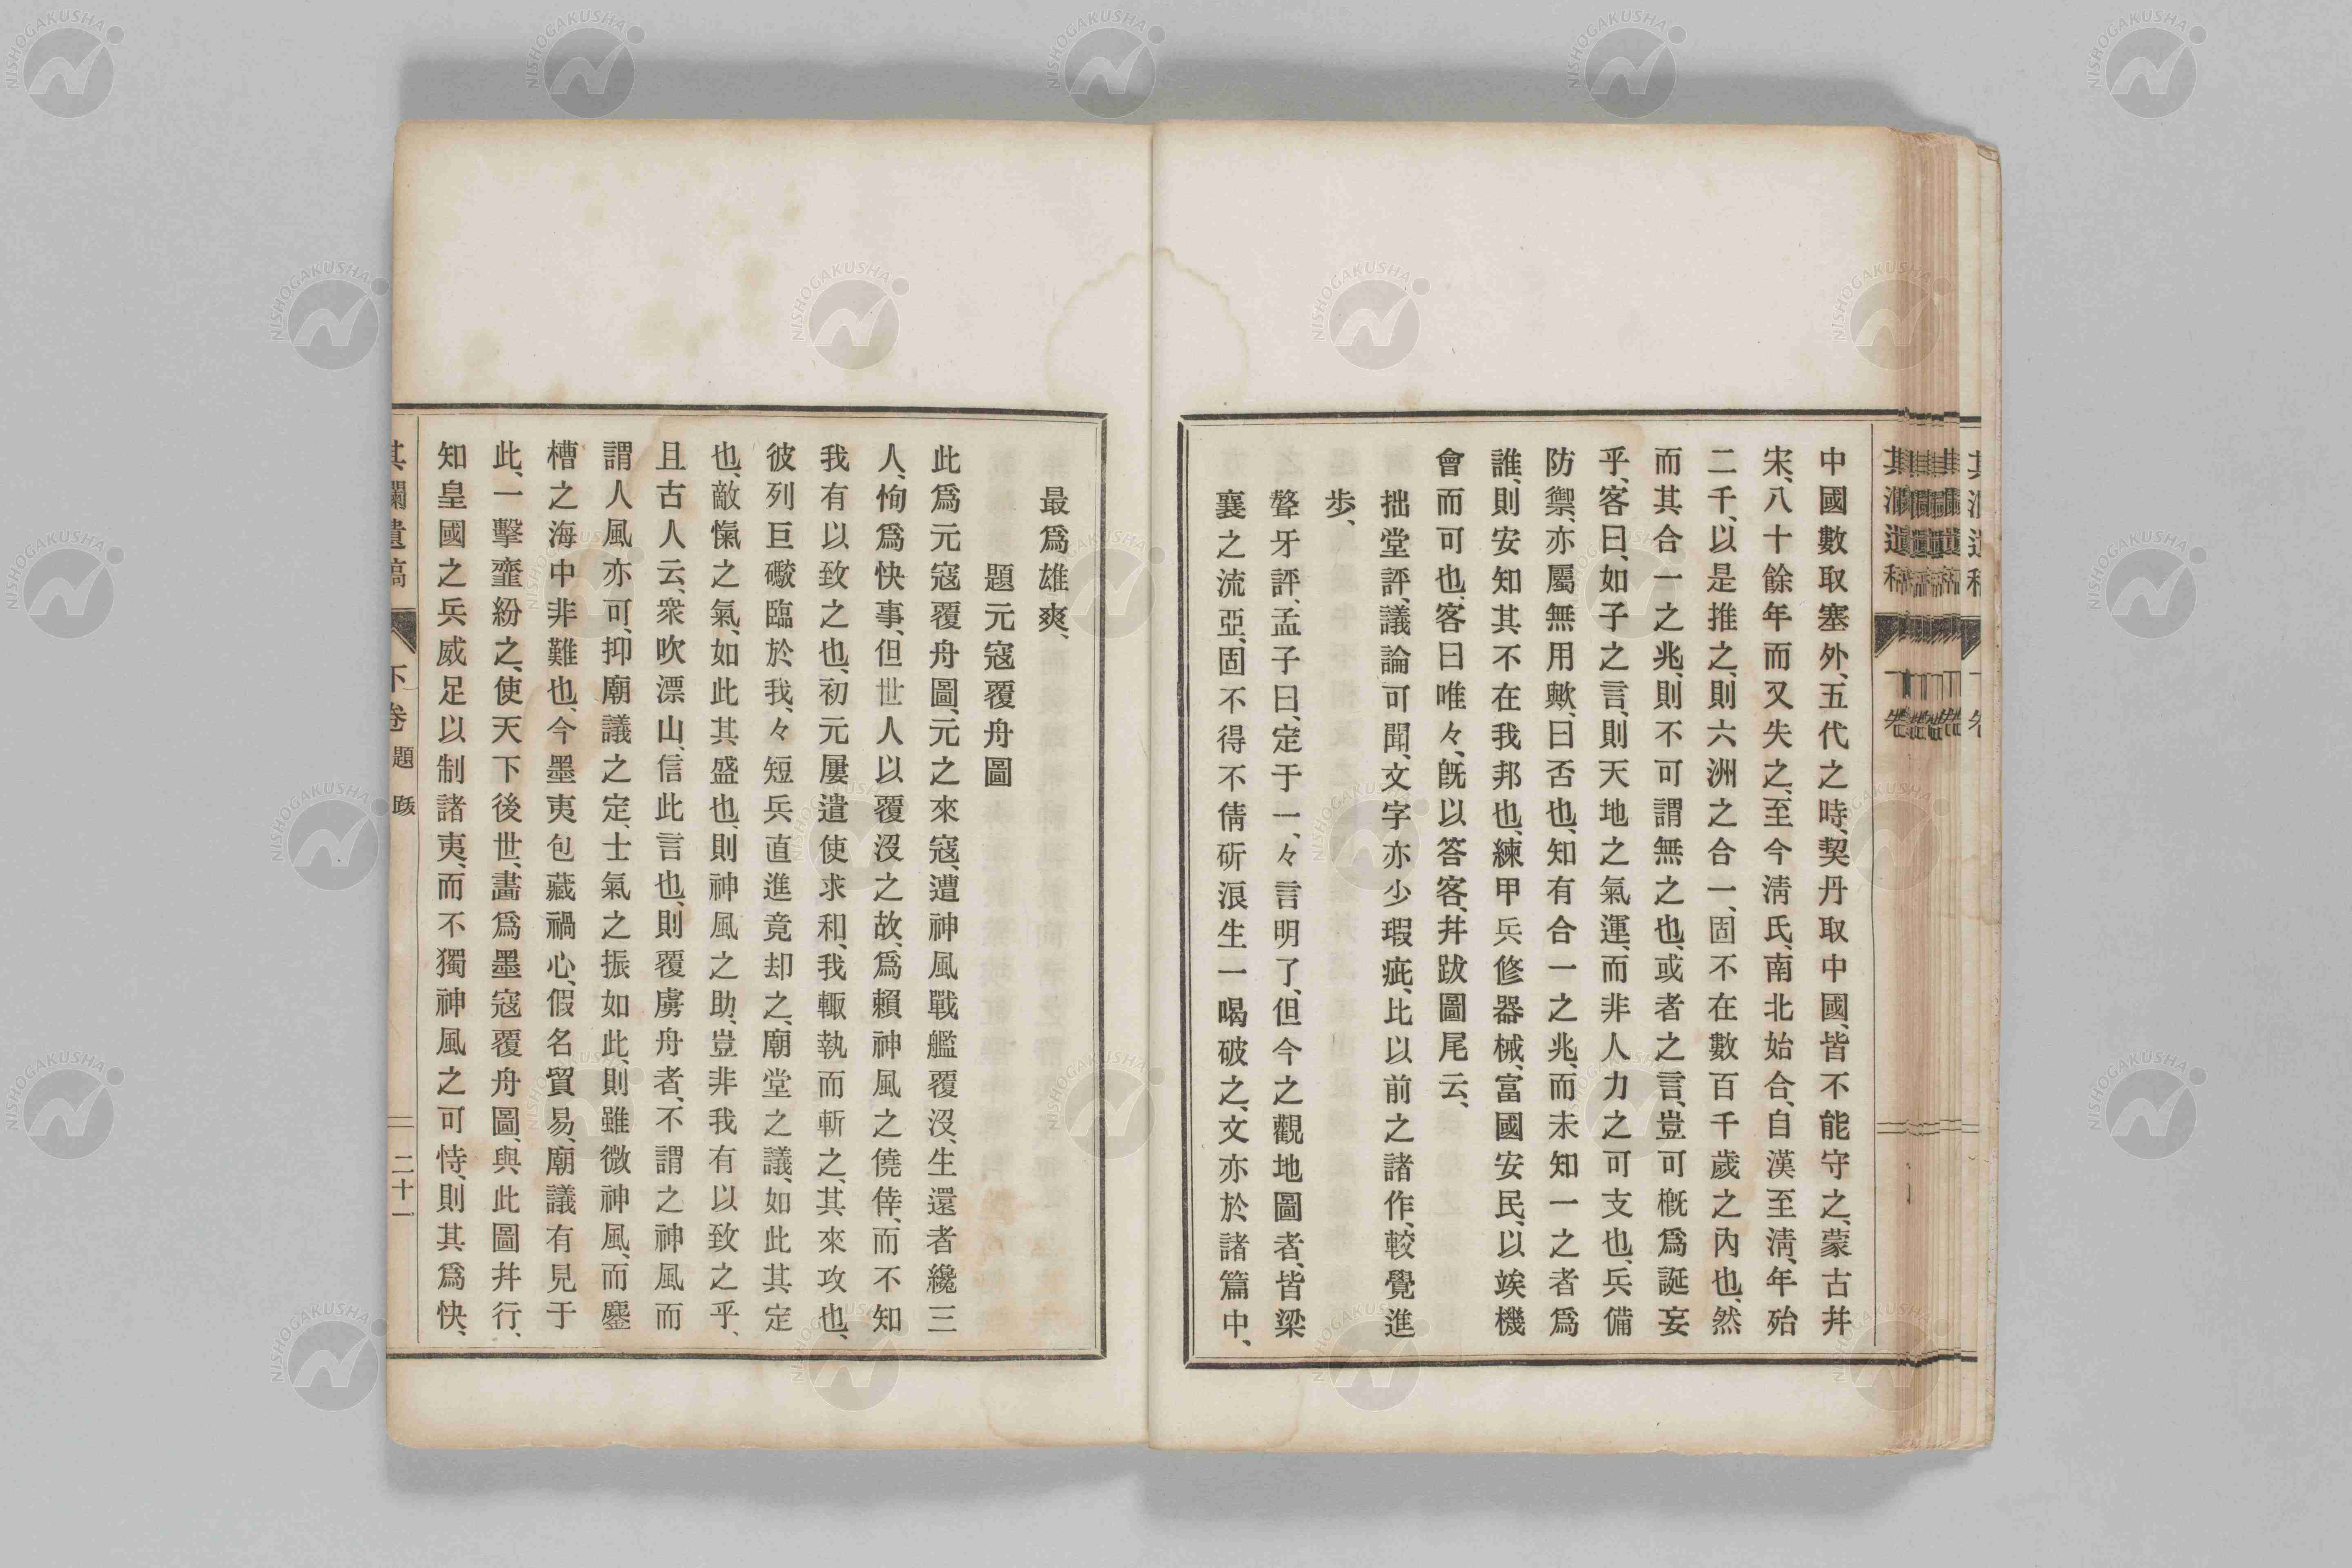 中國數取塞外、五代之時、契丹取中國、皆不能守之、蒙古幷
宋、八十餘年而又失之、至今淸氏、南北始合、自漢至淸、年殆
二千、以是推之、則六洲之合一、固不在數百千歲之內也、然
而其合一之兆、則不可謂無之也、或者之言、豈可槪爲誕妄
乎、客曰、如子之言、則天地之氣運、而非人力之可支也、兵備
防禦、亦屬無用歟、曰否也、知有合一之兆、而未知一之者爲
誰、則安知其不在我邦也、練甲兵修器械、富國安民、以竢機
會而可也、客曰唯々、旣以答客、幷跋圖尾云、
拙堂評、議論可聞、文字亦少瑕疵、比以前之諸作、較覺進
步、
聱牙評、孟子曰、定于一、々言明了、但今之觀地圖者、皆梁
襄之流亞、固不得不倩硏浪生一喝破之、文亦於諸篇中、
最爲雄爽、
題元寇覆舟圖
此爲元寇覆舟圖、元之來寇、遭神風戰艦覆沒、生還者纔三
人、恂爲快事、但世人以覆沒之故、爲賴神風之僥倖、而不知
我有以致之也、初元屢遣使求和、我輙執而斬之、其來攻也、
彼列巨礮臨於我、々短兵直進竟却之、廟堂之議、如此其定
也、敵愾之氣、如此其盛也、則神風之助、豈非我有以致之乎、
且古人云、衆吹漂山、信此言也、則覆虜舟者、不謂之神風而
謂人風亦可、抑廟議之定、士氣之振如此、則雖微神風、而鏖
槽之海中非難也、今墨夷包藏禍心、假名貿易、廟議有見于
此、一擊虀紛之、使天下後世、畵爲墨寇覆舟圖、與此圖幷行、
知皇國之兵威足以制諸夷、而不獨神風之可恃、則其爲快、
其瀾遺稿 下卷 題跋 二十一